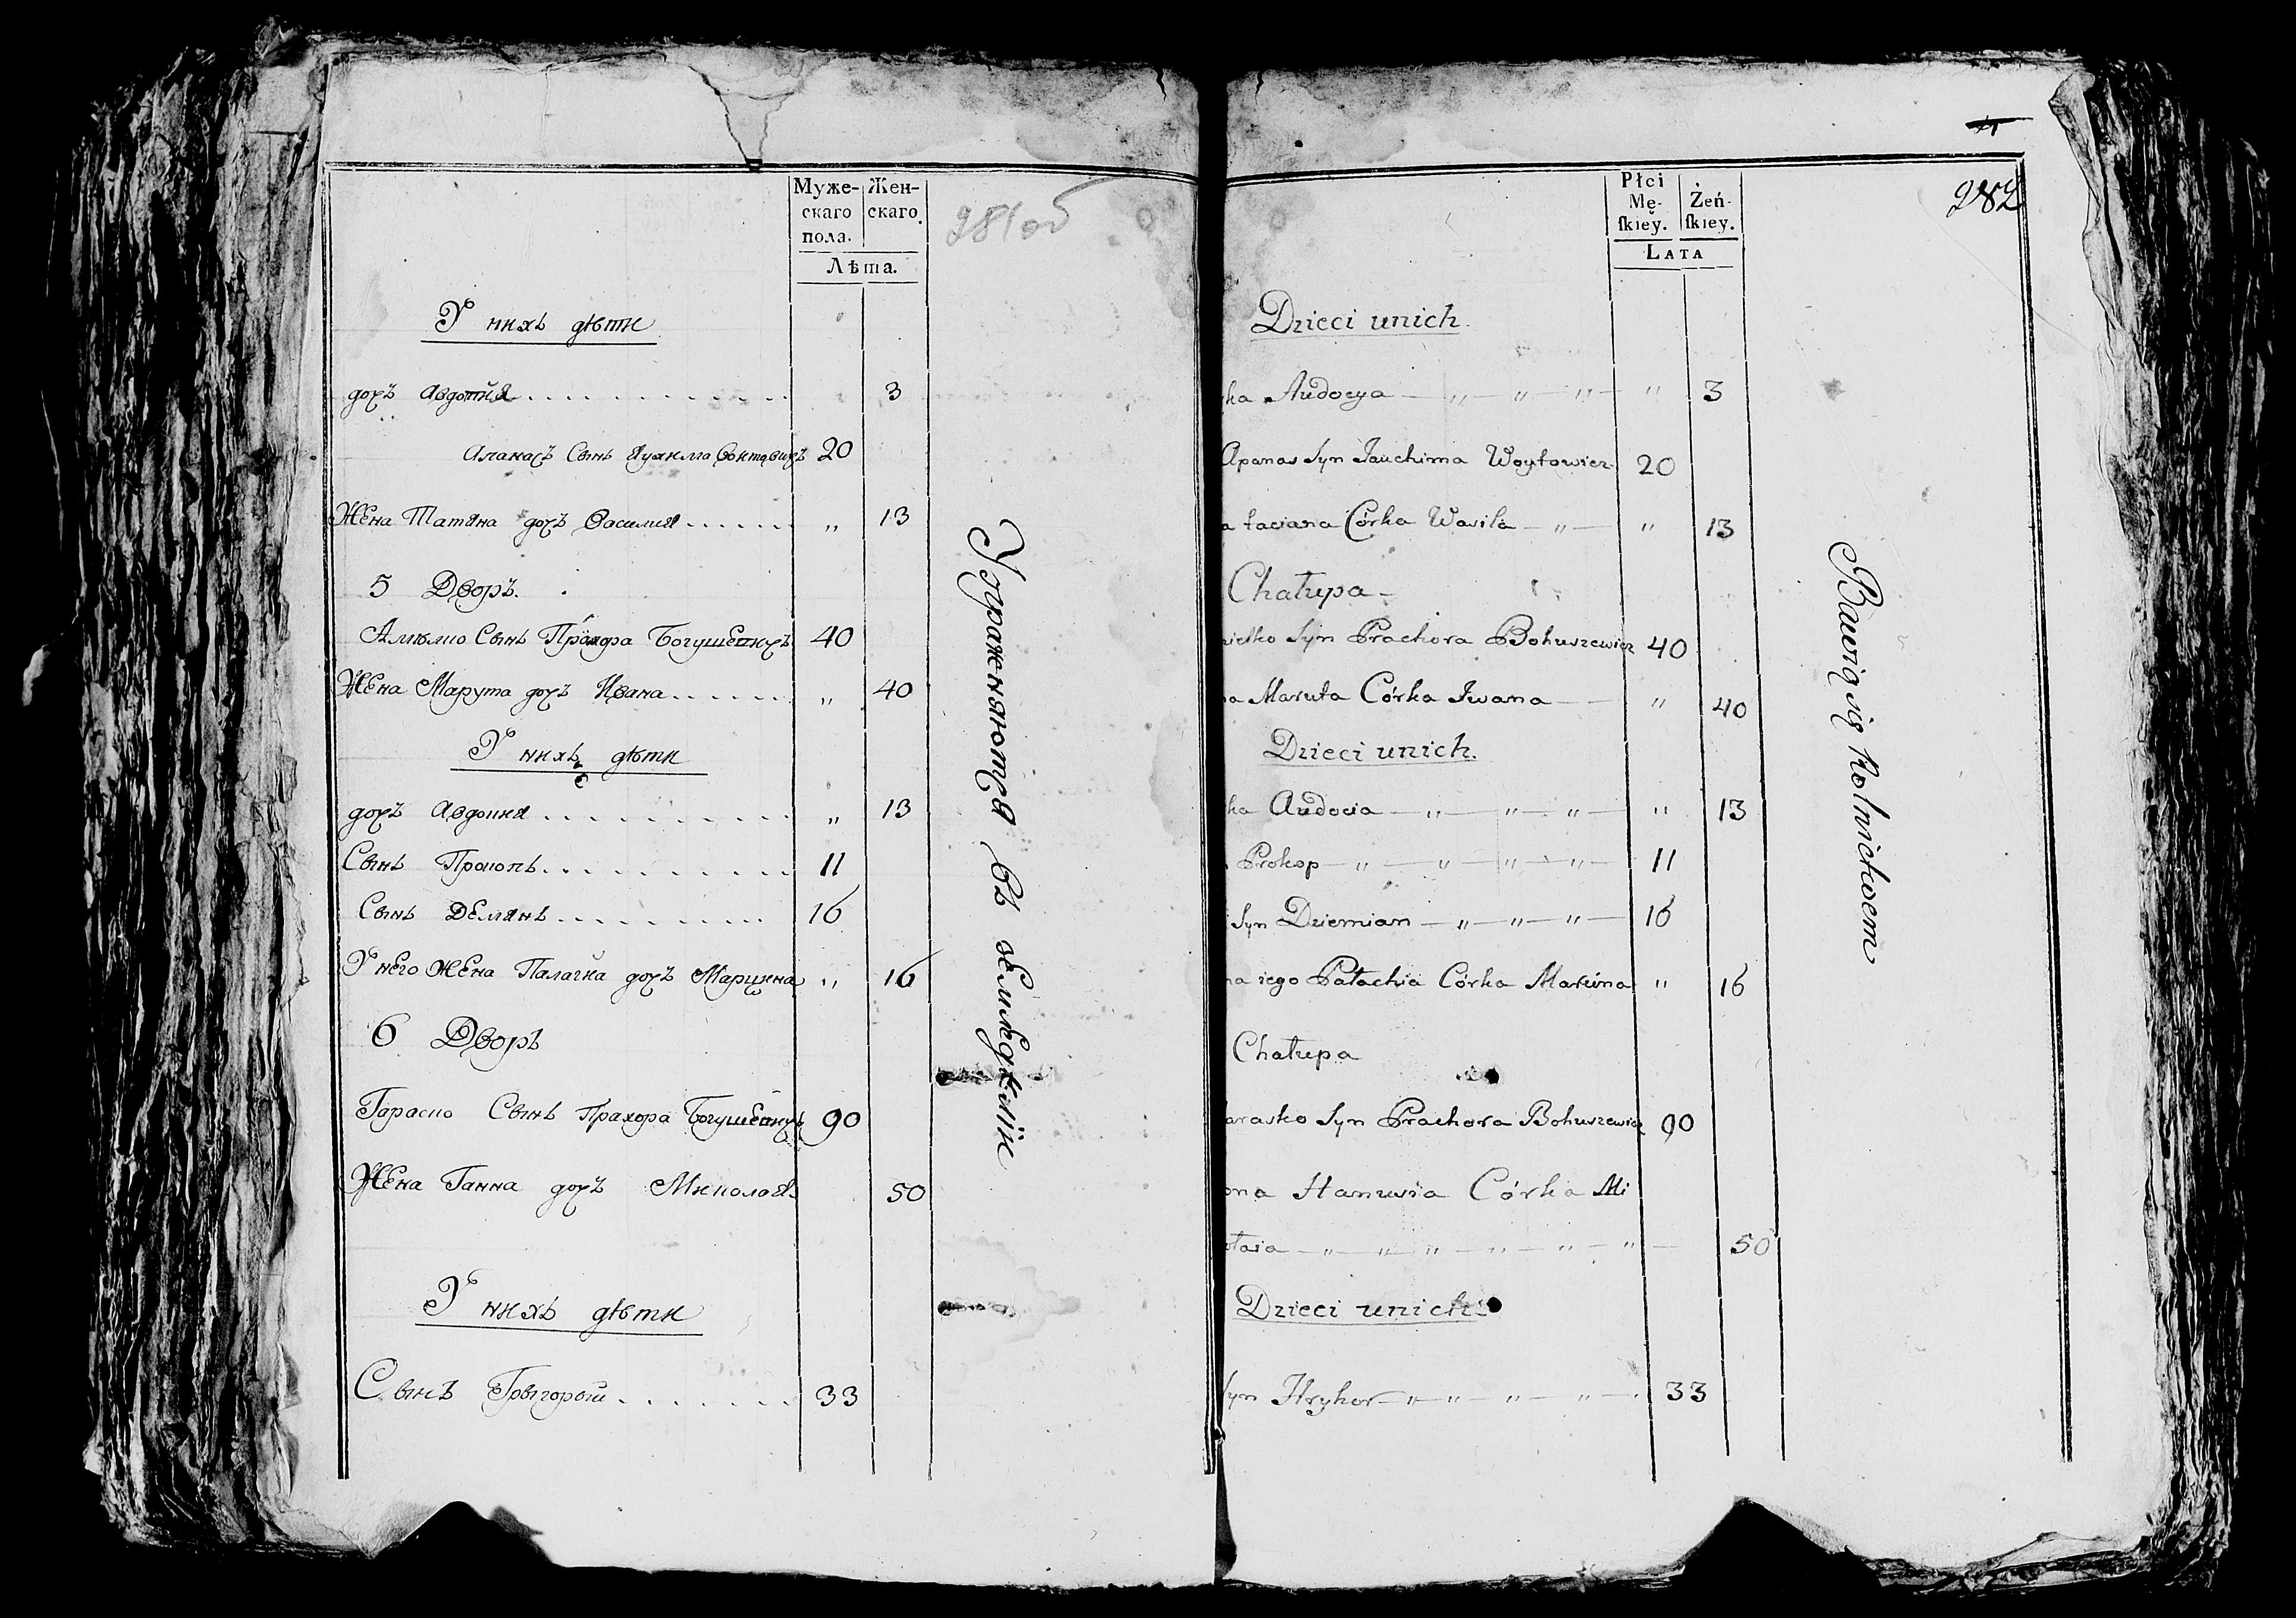 Муже-
скаго
пола.
Жен-
скаго.
Лѣта.
281об
У нихъ дѣти
дочъ Авдотия 3
Апанасъ Сынъ Яухима Войтовичъ 20
Жена Татяна дочъ Василия „ 13
5 Дворъ.
Сынъ Прахора Богушевичъ 40
Жена Марута дочъ Ивана „ 40
У нихъ дѣти
дочъ Авдоция „ 13
Сынъ Прокопъ 11
Сынъ Демянъ 16
У него Жена Палагия дочъ Марцина „ 16
6 Дворъ
Тараско Сынъ Прахора Богушевичъ 90
Жена Ганна дочъ Миколая 50
У нихъ дѣти
Сынъ Грыгорый 33
Упражняются въ земледѣлии
282
Płci
Mę-
ſkiey.
Żeń-
ſkiey.
LATA
Dzieci unich.
ka Audocya „ 3
Apanas Syn Jauchima Woytowicz 20
a Taciana Córka Wasila „ 13
Chałupa
Syn Prachora Bohuszewicz 40
na Maruta Córka Iwana „ 40
Dzieci unich.
ka Audocia „ 13
Prokop 11
Syn Dziemian 16
na iego Pałachia Córka Marcina „ 16
Chałupa
arasko Syn Prachora Bohuszewicz 90
ona Hanusia Córka Mi
ołaia 50
Dzieci unich
Syn Hryhor 33
Bawią się Rolnictwem